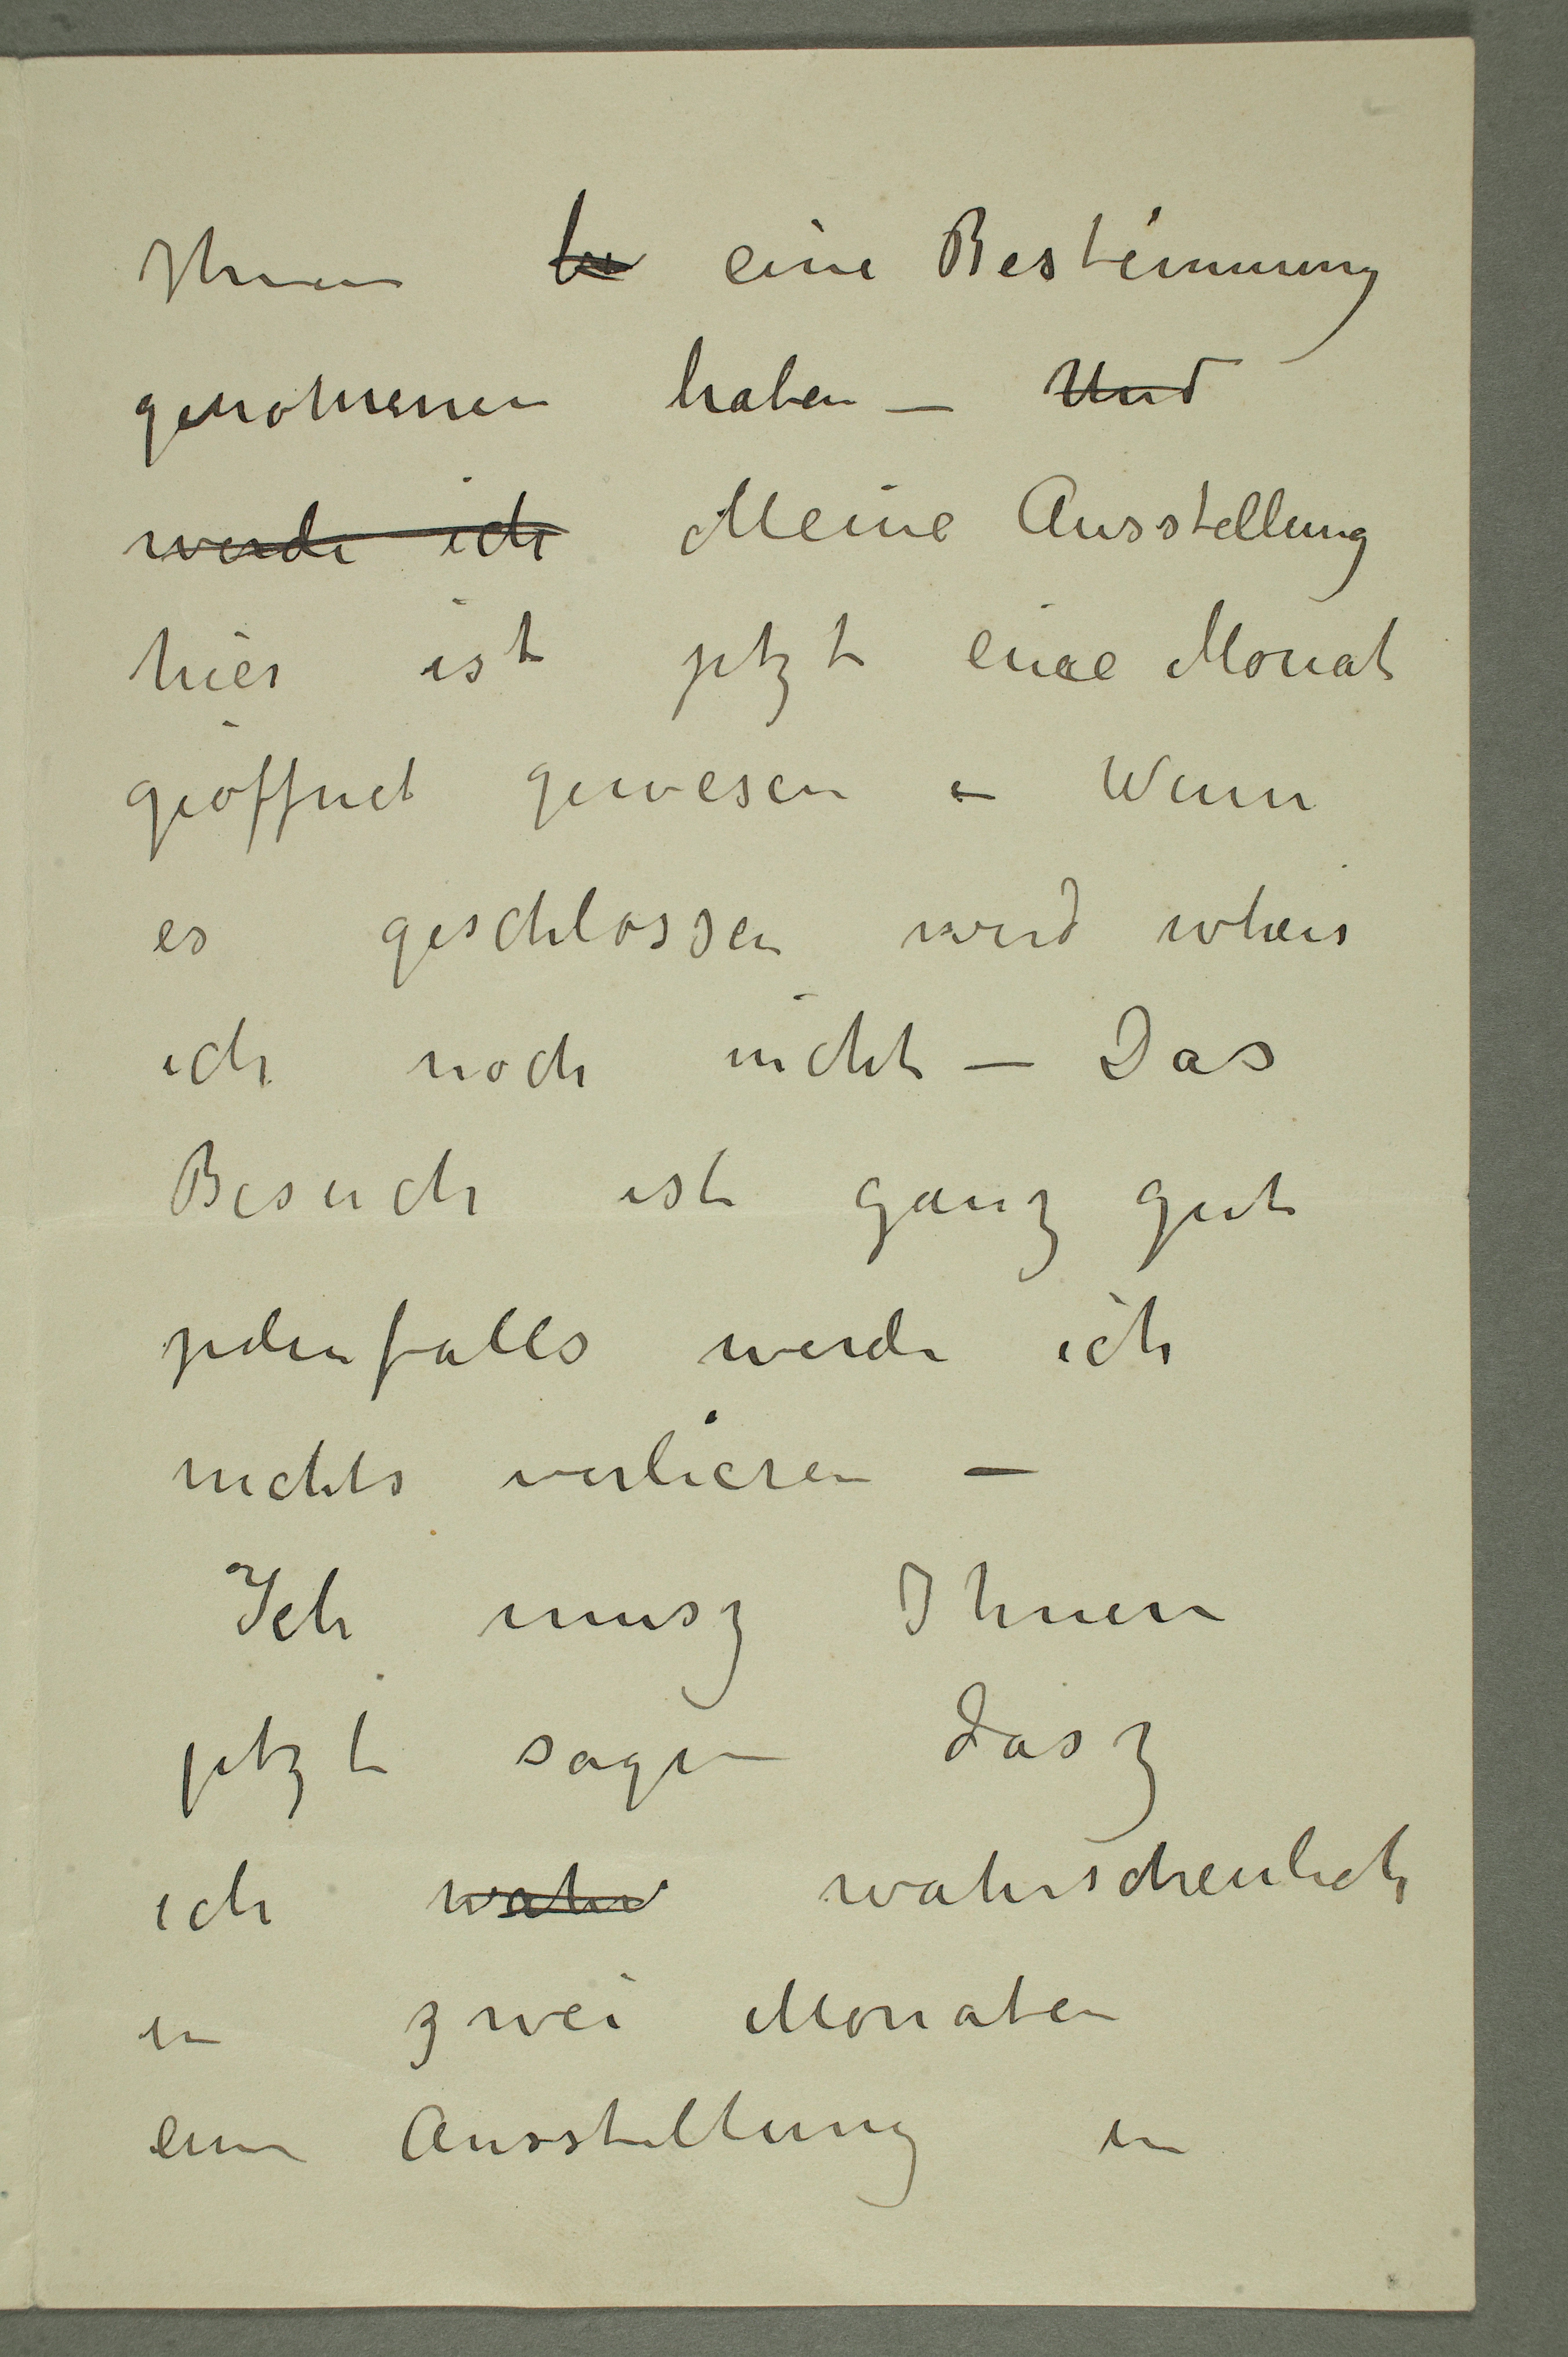 Ihnen be eine Bestimmung
genohmenen haben – Und
werde ich Meine Ausstellung
hier ist jetzt eine Monat
geöffnet gewesen – Wenn
es geschlossen wird wheis
ich noch nicht – Das
Besuch ist ganz gut
jedenfalls werde ich
nichts verlieren –
Ich musz Ihnen
jetzt sagen dasz
ich wahr wahrscheinlich
in zwei Monaten
eine Ausstellung in